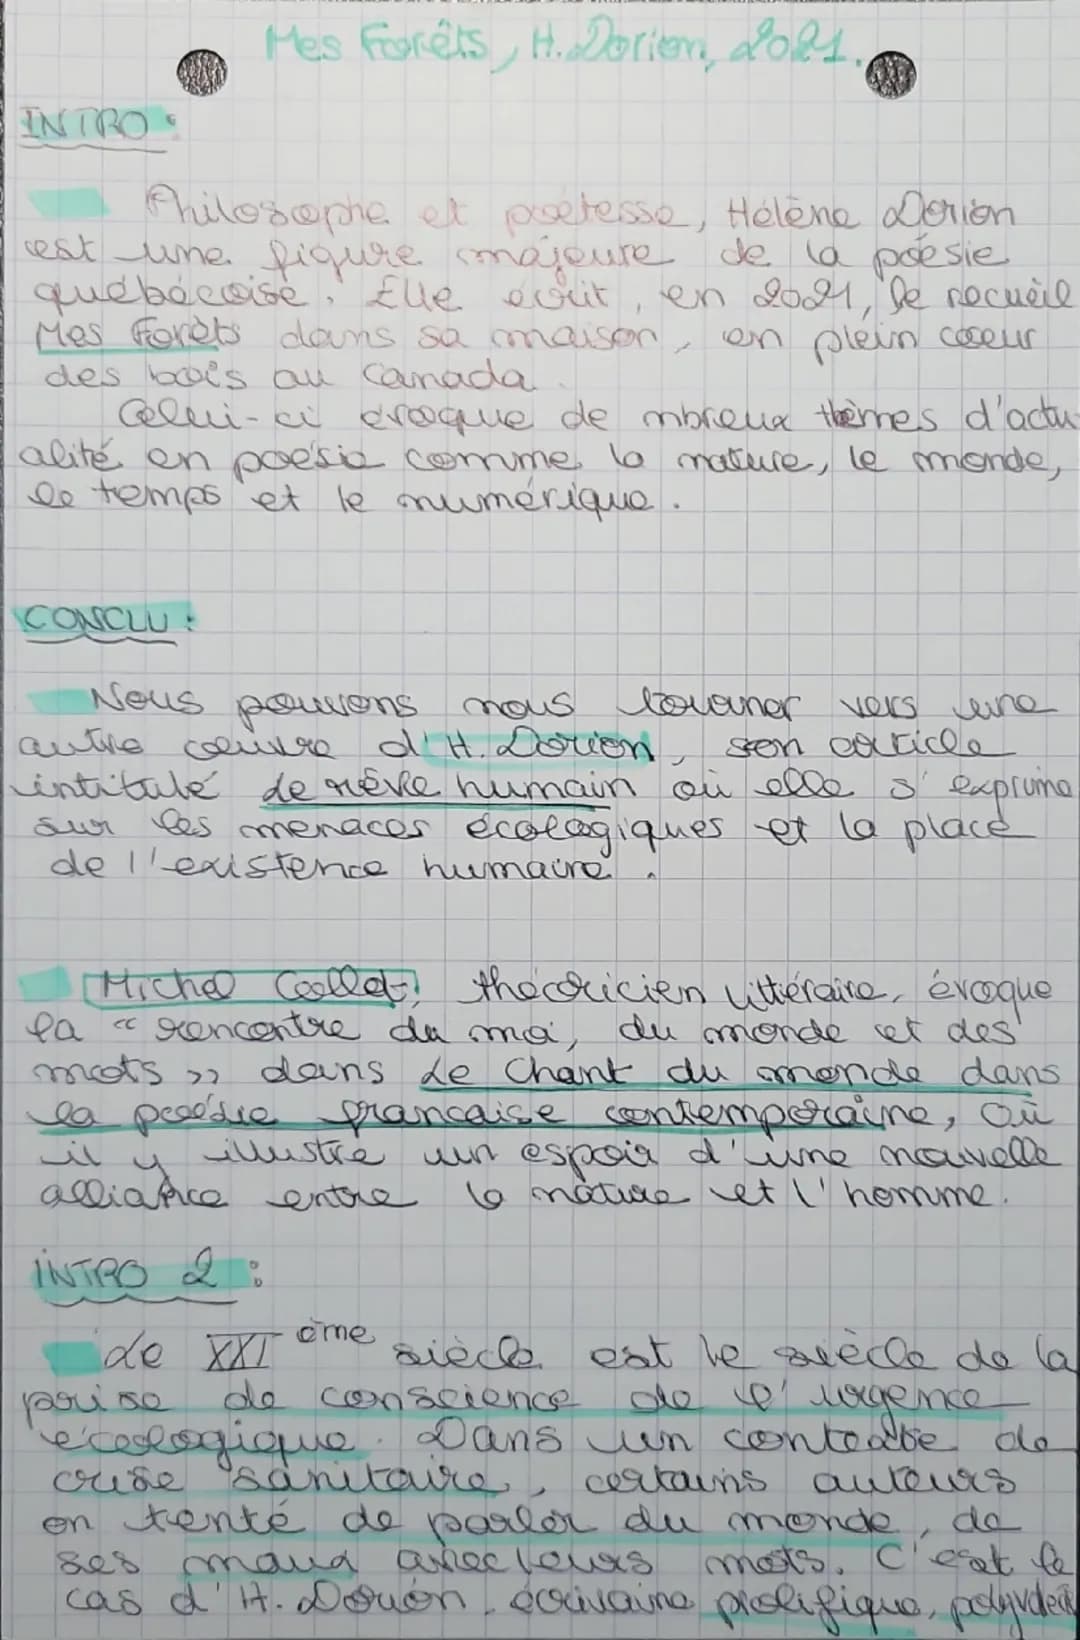 Mes Forêts, H. Dorion, 2021.
INTRO :
Philosophe et poétesse, Hélène Dorion
est une figure majeure de la poésie
québécoise. Elle écrit, en 2021, le recueil
Mes Forêts dans sa maison, en plein coeur
des bois au Canada.
Celui-ci évoque de mbreux thèmes d'actu
alité en poésie comme la nature, le monde,
le temps et le numérique.
CONCLU :
Nous pouvons nous tourner vers une
autre oeuvre d'H. Dorion, son article
intitulé Le rêve humain où elle s'exprime
sur les menaces écologiques et la place
de l'existence humaine.
Michel Collot, théoricien littéraire, évoque
la « rencontre du moi, du monde et des
mots » dans Le Chant du monde dans
la poésie française contemporaine, où
il y illustre un espoir d'une nouvelle
alliance entre la nature et l'homme.
INTRO 2 :
Le XXI ème siècle est le siècle de la
prise de conscience de l'urgence
écologique. Dans un contexte de
crise sanitaire, certains auteurs
on tenté de parler du monde, de
ses maux avec leurs mots. C'est le
cas d'H. Dorion, écrivaine prolifique,